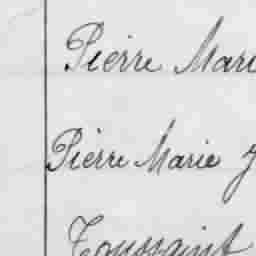 Pierre Mari
Pierre Marie J
Toussaint